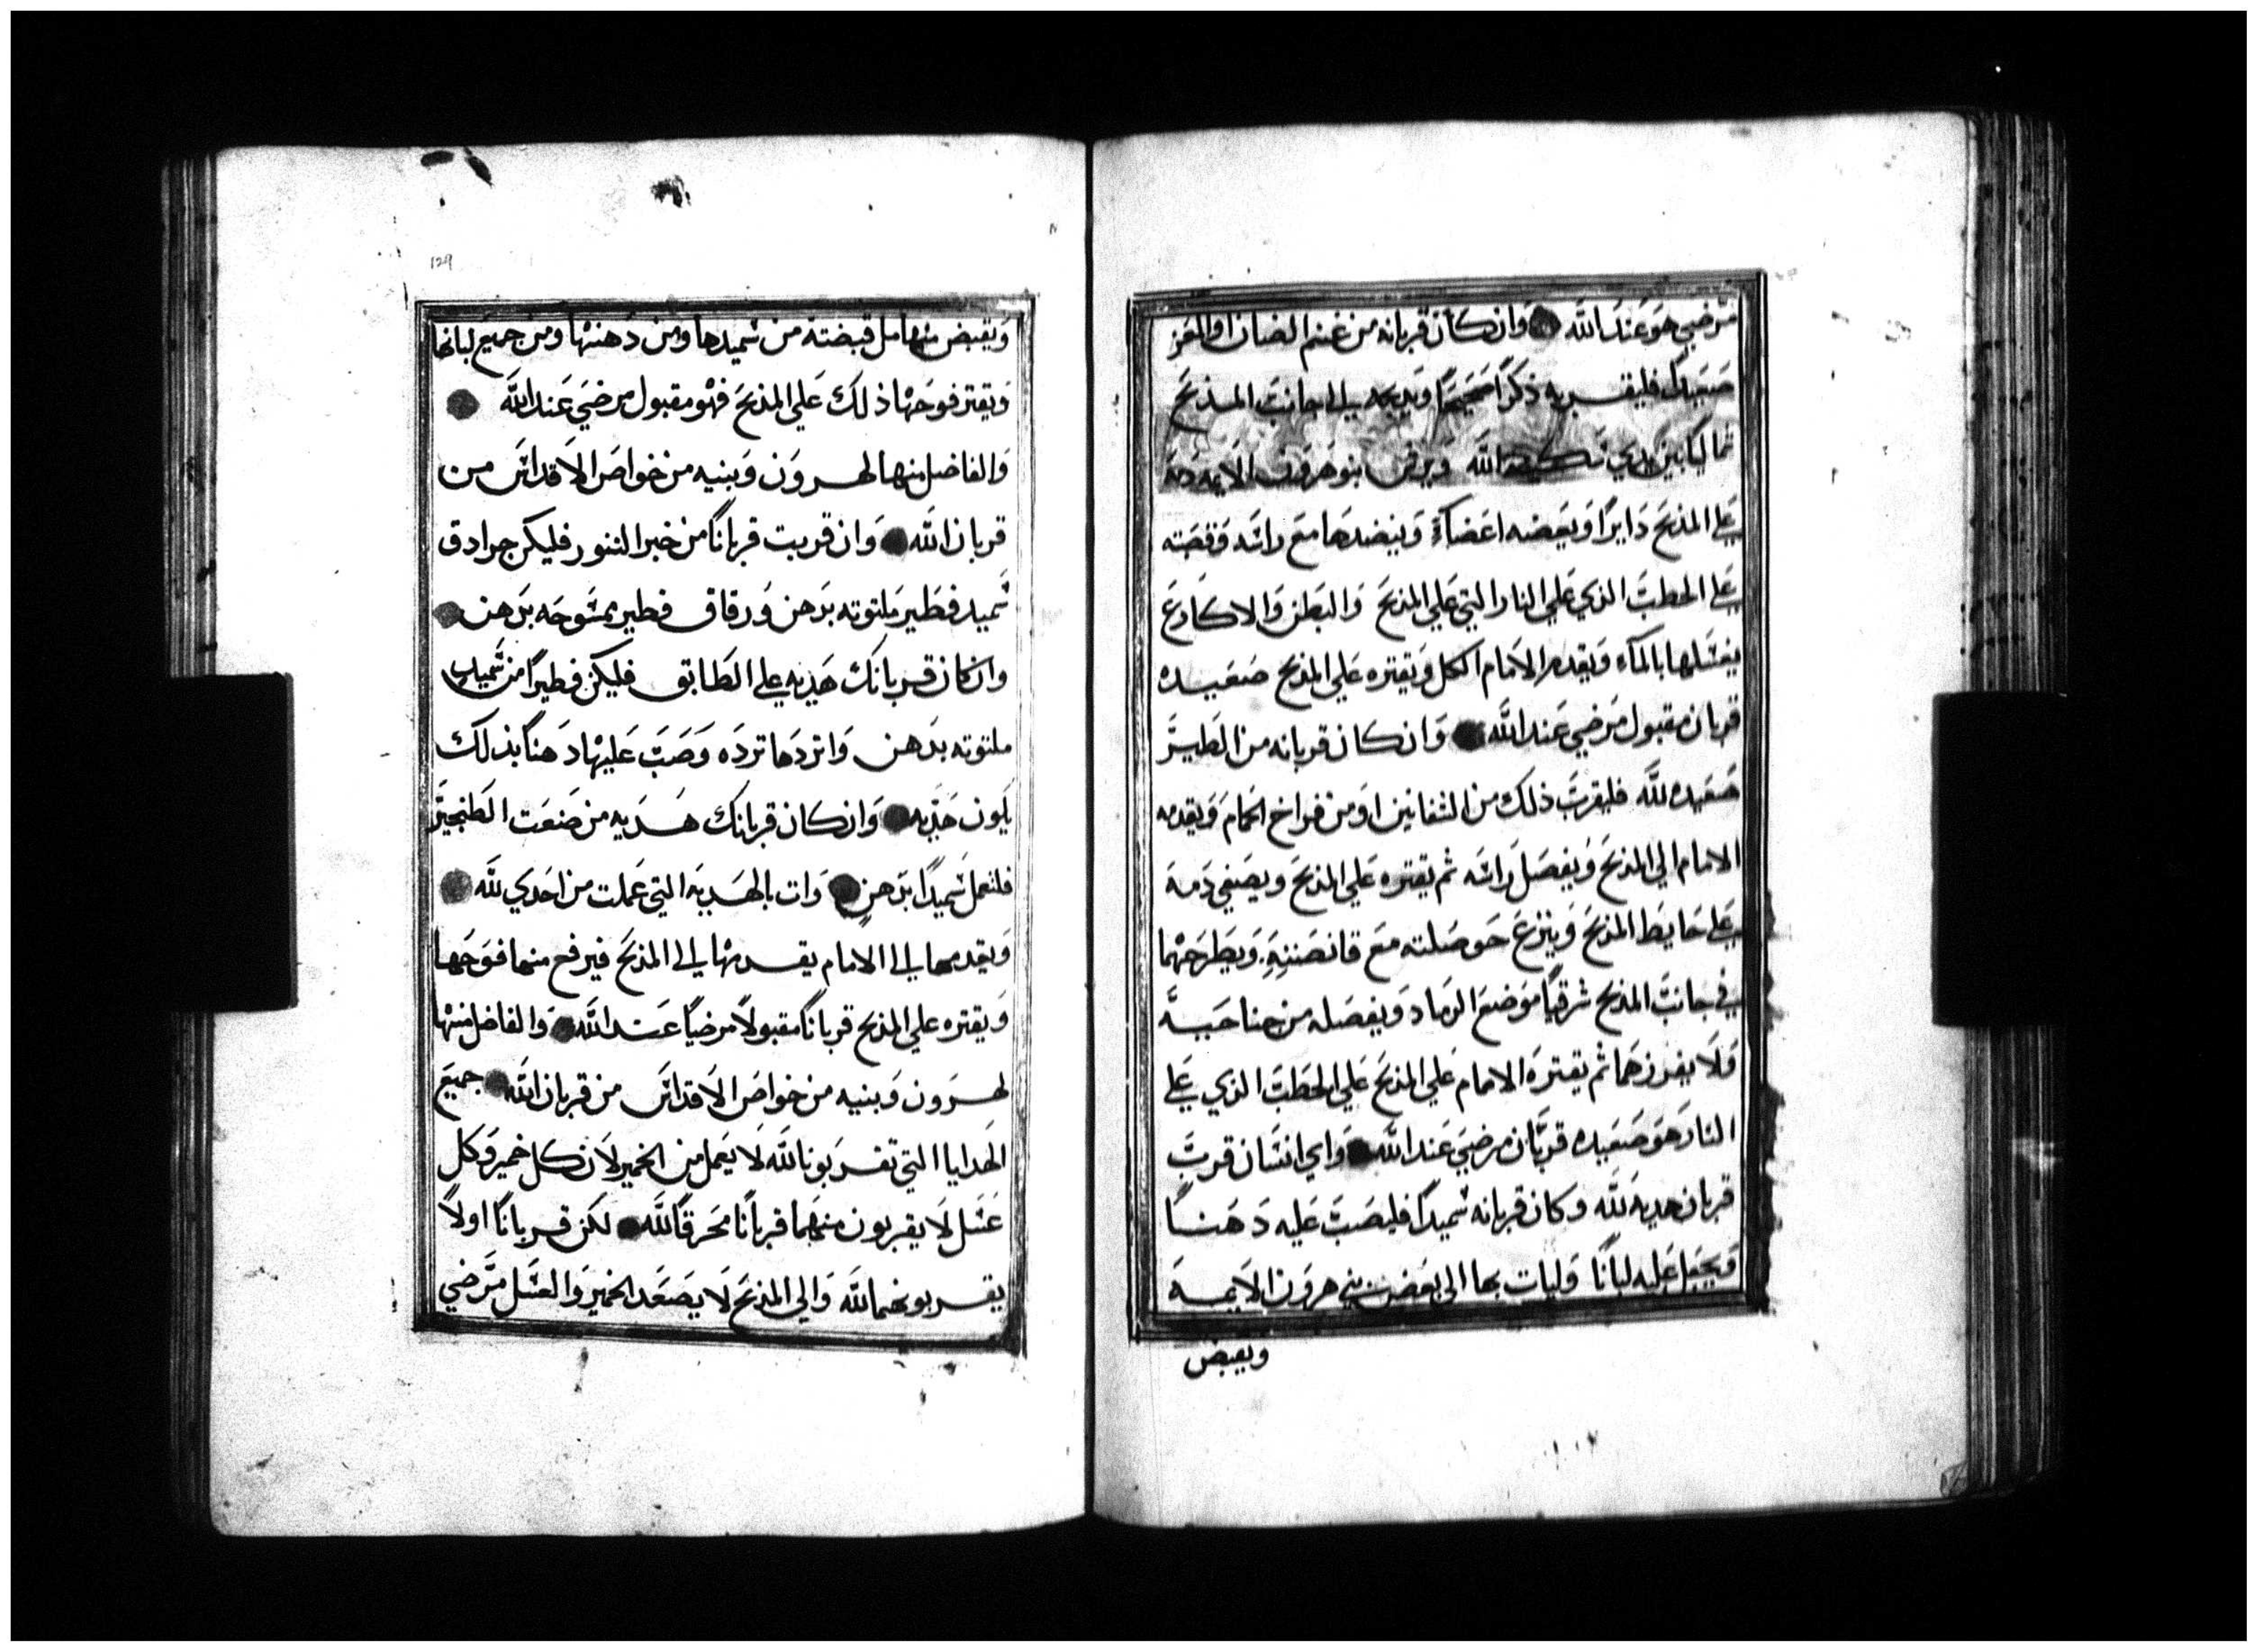 مرضي هو عند الله وان كان قربانه من غنم الضان او المعز
صعيدة فليقربه ذكرا صحيحا ويذبحه الي جانب المذبح
شماليا بين يدي الله ويرش بنو هرون الايمه دمه
علي المذبح دايرا ويعضه اعضاءً وينضدها مع راسه وقصبته
علي الحطب الذي علي النار التي علي المذبح والبطن والاكارع
يغسلها بالماء ويقدم الامام الكل ويقتره علي المذبح صعيده
قربان مقبول مرضي عند الله وان كان قربانه من الطير
صعيده لله فليقرب ذلك من الشفانين او من فراخ الحمام ويقدمه
الامام الي المذبح ويفصل راسه ثم يقتره علي المذبح ويصفي دمه
علي حايط المذبح وينزع حوصلته مع قانصته ويطرحهما
في جانب المذبح شرقيا موضع الرماد ويفصله من جناحيه
ولا يفرزهما ثم يقتره الامام علي المذبح علي الحطب الذي علي
النار هو صعيده قربان مرضي عند الله واي انسان قرب
قربان هديه لله وكان قربانه سميدا فليصب عليه دهنا
ويجعل عليه لبانا وليات بها الي بعض بني هرون الايمه
ويقبض
ويقبض منها مل قبضته من سميدها ومن دهنها ومن جميع لبانها
ويقتر فوحها ذلك علي المذبح فهو مقبول مرضي عند الله
والفاضل منها لهرون وبنيه من خواص الاقداس من
قربان الله وان قربت قربانا من خبز التنور فليكن جرادق
سميد فطير ملتوته بدهن ورقاق فطير ممسوحه بدهن
وان كان قربانك هديه علي الطابق فليكن فطيرا من سميد
ملتوته بدهن واتردها ترده وصب عليها دهنا بذلك
يكون هديه وان كان قربانك هديه من صنعت الطنجير
فلتعمل سميدا بدهن وات بالهديه التي عملت من احدي لله
ويقدمها الي الامام يقدمها الي المذبح فيرفع منها فوحها
ويقتره علي المذبح قربانا مقبولا مرضيا عند الله والفاضل منها
لهرون وبنيه من خواص الاقداس من قربان الله جميع
الهدايا التي تقربونا لله لا يعمل من الخمير لان كل خمير وكل
عسل لا يقربون منهما قربانا محرقا لله لكن قربانا اولا
يقربونهما لله والي المذبح لا يصعد الخمير والعسل مرضي
129